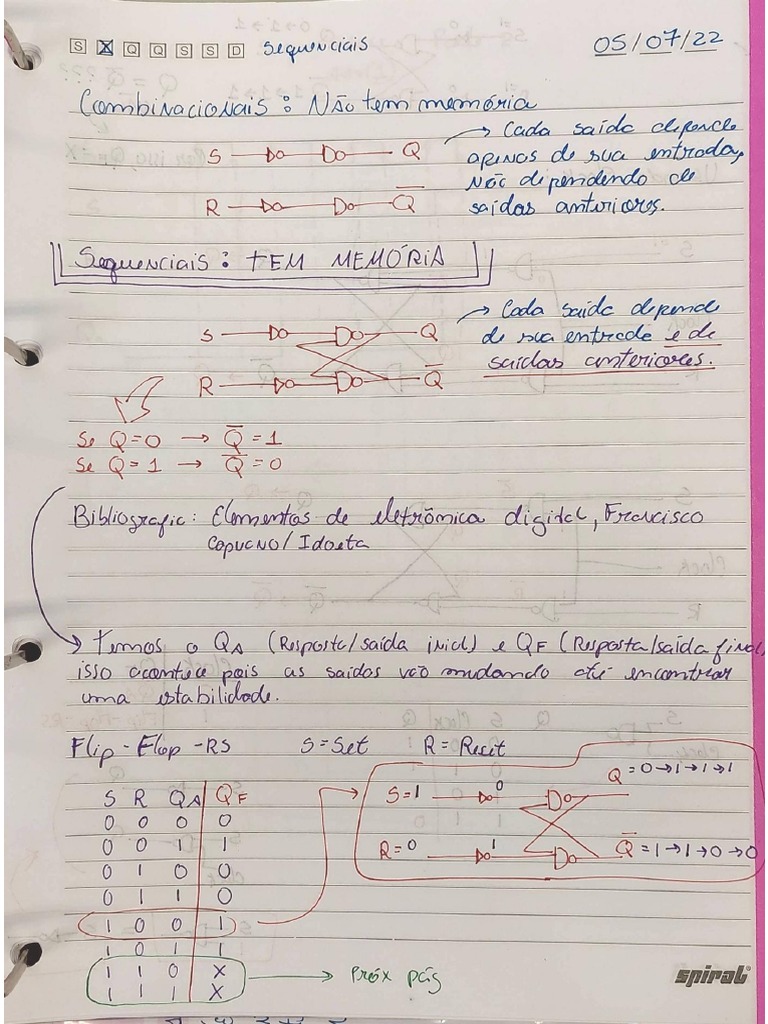 S X Q Q S S D Sequenciais 05/07/22
Combinacionais: Não tem memória
S Q → Cada saída depende
apenas de sua entrada,
R Q̅ Não dependendo de
saídas anteriores.
Sequenciais: TEM MEMÓRIA
S Q → Cada saída depende
de sua entrada e de
R Q̅ saídas anteriores.
Se Q=0 → Q̅ = 1
Se Q=1 → Q̅ = 0
Bibliografia: Elementos de eletrônica digital, Francisco
Capuano/Idoeta
→ Temos o QA (Resposta/saída inicial) e QF (Resposta/saída final,
isso acontece pois as saídas vão mudando até encontrar
uma estabilidade.
Flip-Flop-RS S=Set R=Recit
Q=0→1→1→1
S R QA QF S=1 0
0 0 0 0
0 0 1 1 R=0 1 Q̅=1→1→0→0
0 1 0 0
0 1 1 0
1 0 0 1
1 0 1 1
1 1 0 X → Próx pág
1 1 1 X
spiral®